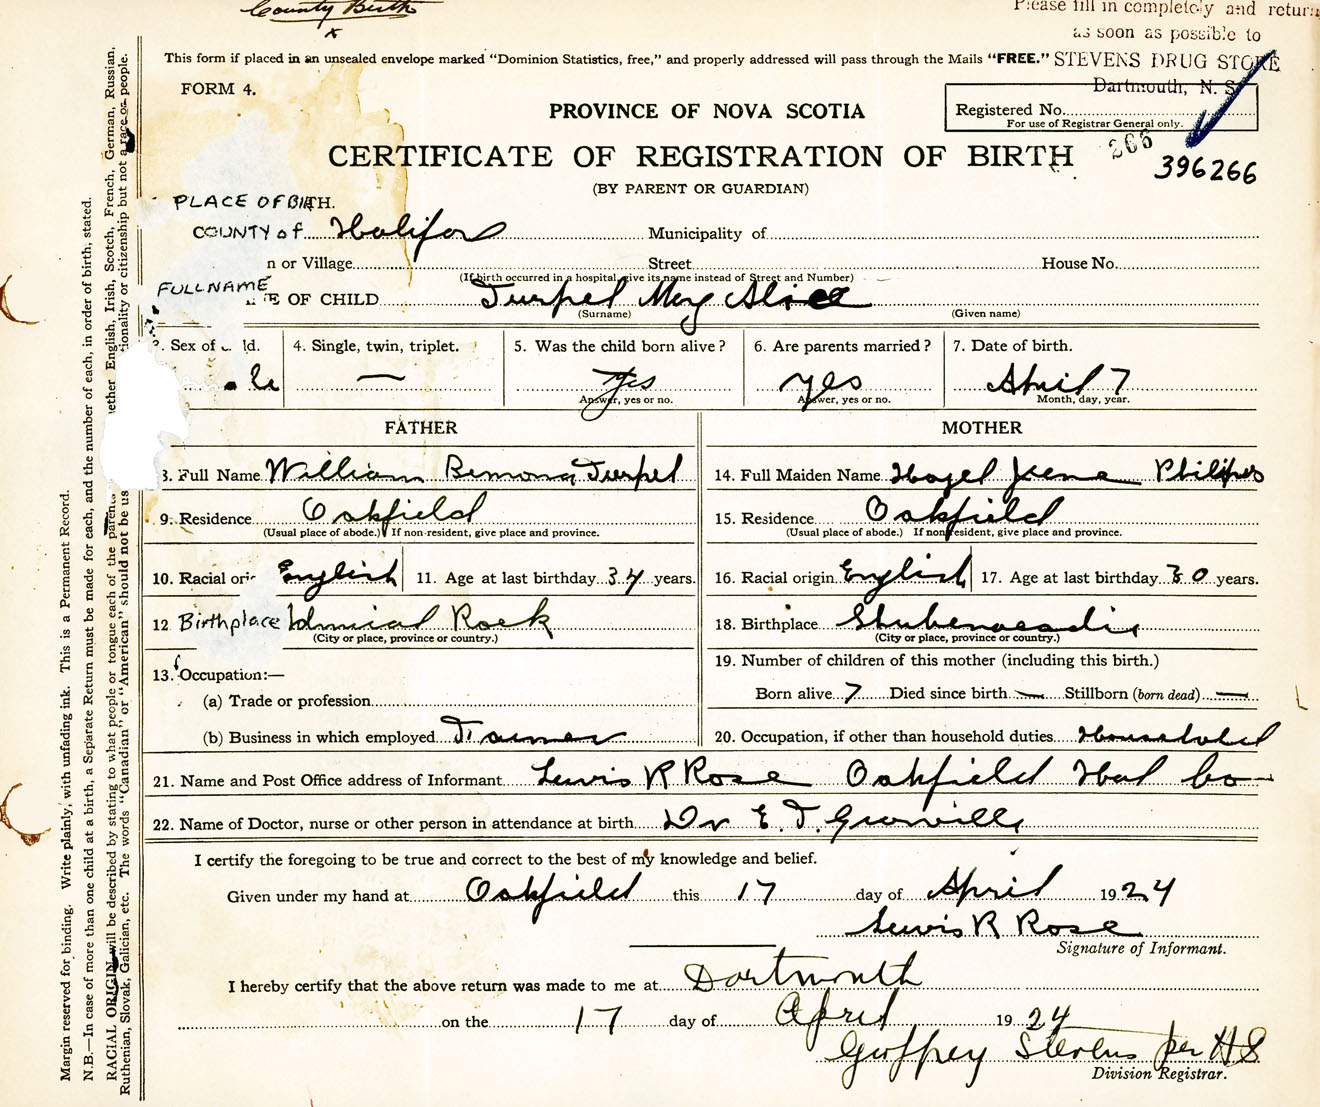 County Birth
x
Please fill in completely and return
as soon as possible to
This form if placed in an unsealed envelope marked "Dominion Statistics, free," and properly addressed will pass through the Mails "FREE." STEVENS DRUG STORE
Dartmouth, N. S.
FORM 4.
PROVINCE OF NOVA SCOTIA
Registered No.
For use of Registrar General only.
266
396266
CERTIFICATE OF REGISTRATION OF BIRTH
(BY PARENT OR GUARDIAN)
PLACE OF BIRTH.
COUNTY of Halifax Municipality of
n or Village Street House No.
(If birth occurred in a hospital, give its name instead of Street and Number)
FULL NAME
E OF CHILD Turpel May Alice
(Surname) (Given name)
Sex of ld. 4. Single, twin, triplet. 5. Was the child born alive? 6. Are parents married? 7. Date of birth.
le — Yes yes April 7
Answer, yes or no. Answer, yes or no. Month, day, year.
FATHER MOTHER
8. Full Name William Turpel 14. Full Maiden Name Hazel Philips
9. Residence Oakfield 15. Residence Oakfield
(Usual place of abode.) If non-resident, give place and province. (Usual place of abode.) If non resident, give place and province.
10. Racial ori English 11. Age at last birthday 34 years. 16. Racial origin English 17. Age at last birthday 30 years.
12 Birthplace Admiral Rock 18. Birthplace Shubenacadie
(City or place, province or country.) (City or place, province or country.)
13. Occupation:— 19. Number of children of this mother (including this birth.)
(a) Trade or profession Born alive 7 Died since birth — Stillborn (born dead) —
(b) Business in which employed 20. Occupation, if other than household duties Household
21. Name and Post Office address of Informant Lewis R Rose Oakfield Hal Co
22. Name of Doctor, nurse or other person in attendance at birth Dr E. T. Granville
I certify the foregoing to be true and correct to the best of my knowledge and belief.
Given under my hand at Oakfield this 17 day of April 1924
Lewis R Rose
Signature of Informant.
I hereby certify that the above return was made to me at Dartmouth
on the 17 day of April 1924
Geoffrey Stevens per H S
Division Registrar.
Margin reserved for binding. Write plainly, with unfading ink. This is a Permanent Record.
N.B.—In case of more than one child at a birth, a Separate Return must be made for each, and the number of each, in order of birth, stated.
RACIAL ORIGIN will be described by stating to what people or tongue each of the parents ether English, Irish, Scotch, French, German, Russian,
Ruthenian, Slovak, Galician, etc. The words "Canadian" or "American" should not be us ionality or citizenship but not a race or people.